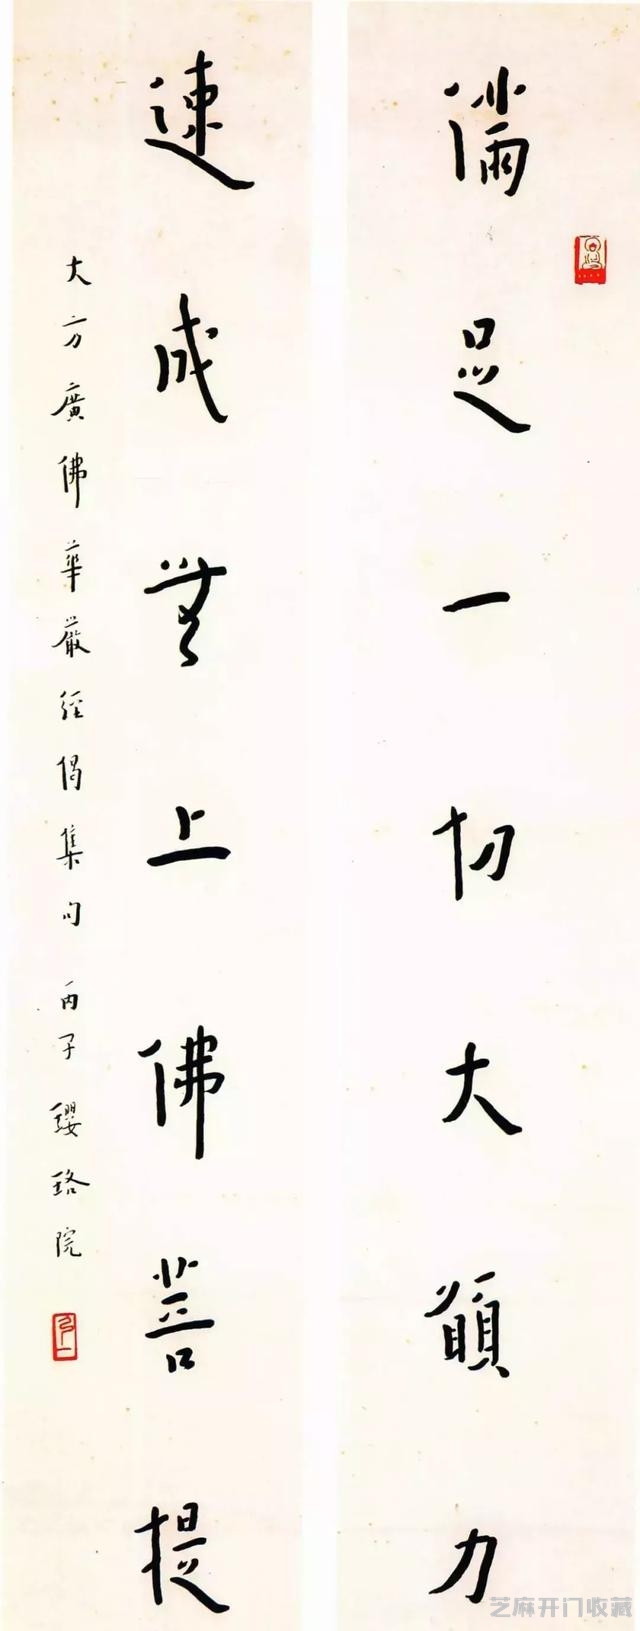 滿足一切大願力
速成無上佛菩提
大方廣佛華嚴經偈集句 丙子瓔珞院
芝麻开门收藏